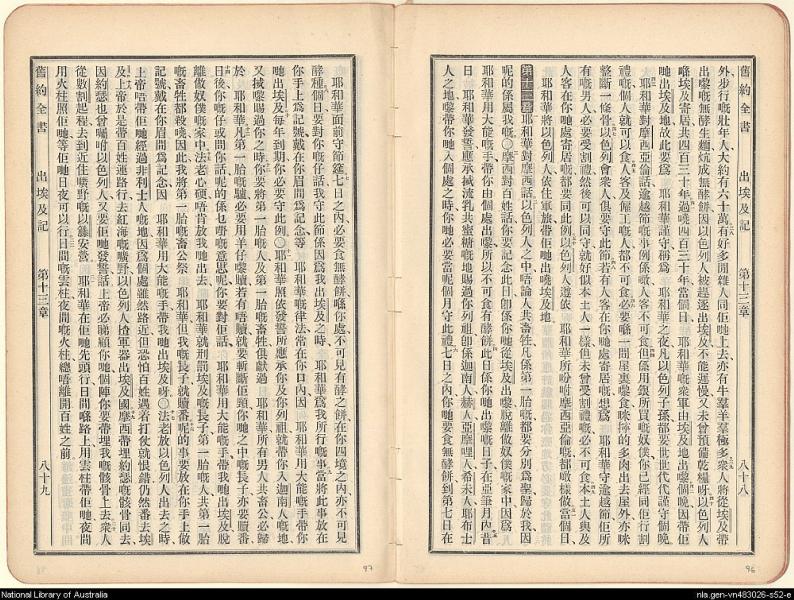 舊約全書 出埃及記 第十二章 八十八
外步行嘅壯年人大約有六十萬有好多閒雜人同佢哋上去亦有牛羣羊羣極多衆人將從埃及帶
出嚟嘅無酵生麵炕成無酵餅因以色列人被趕逐出埃及不能遲慢又未曾預備乾糧呀以色列人
喺埃及寄居共四百三十年過嘵四百三十年當個日 耶和華嘅衆軍由埃及地出嚟個晚因帶佢
哋出埃及地故此要爲 耶和華謹守稱爲 耶和華之夜凡以色列子孫都要世世代代謹守個晚
耶和華對摩西亞倫話逾越節嘅事例係噉人客不可食但係用銀所買嘅奴僕你已經同佢行割
禮嘅個人就可以食人客及僱工嘅人都不可食必要喺一間屋裏嚟食咪攞的多肉出去屋外亦咪
整斷一條骨以色列會衆人俱要守此節若有人客在你哋處寄居嘅想爲 耶和華守逾越節佢所
有嘅男人必要受割禮然後可以同守就好似本土人一樣但未曾受割禮嘅必不可食本土人與及
人客在你哋處寄居嘅都要同此例以色列人遵依 耶和華所吩咐摩西亞倫嘅都噉樣做當個日
耶和華將以色列人依住軍旅帶佢哋出嘵埃及地
第十三章 耶和華對摩西話以色列人之中唔論人共畜牲凡係第一胎嘅都要分別爲聖歸於我因
呢的係屬我嘅〇摩西對百姓話你要記念此日卽係你哋從埃及出嚟脫離做奴僕嘅家中因爲
耶和華用大能嘅手帶你由個處出嚟所以不可食有酵餅此日係你哋出嚟嘅日子在亞筆月內昔
日 耶和華發誓應承撼流乳共蜜糖嘅地賜過你列祖卽係迦南人赫人亞摩哩人希未人耶布士
人之地嚟帶你哋入個處之時你哋要當呢個月守此禮七日之內你哋要食無酵餅到第七日在
耶和華面前守節筵七日之內必要食無酵餅喺你處不可見有酵之餅在你四境之內亦不可見
酵種個日要對你嘅仔話我守此節係因爲我出埃及之時 耶和華爲我所行嘅事當將此事放在
你手上爲記號戴在你眉間爲記念等 耶和華嘅律法常在你口內因 耶和華用大能嘅手帶你
哋出埃及每年到期你必要守此例〇 耶和華將依發誓所應承你及你列祖就帶你入迦南人嘅地
又掝嚟賜過你之時你要將第一胎嘅人及第一胎嘅畜牲俱獻過 耶和華所有男人共畜公必歸
於 耶和華凡第一胎嘅驢必要用羊仔嚟贖若有唔贖就要斬斷佢頸你哋之中嘅長子亦要贖番
日後你嘅仔或問你話呢的係乜嘢意思呢你要對佢話 耶和華用大能嘅手帶我哋出埃及脫
離做奴僕嘅家中法老心硬唔肯放我哋出去 耶和華就刑罰埃及嘅長子第一胎嘅人共第一胎
嘅畜牲都殺嘵因此我將第一胎嘅畜公祭 耶和華但我嘅長子就贖番呢的事要放在你手上做
記號戴在你眉間爲記念因 耶和華用大能嘅手帶我哋出埃及呀〇法老放以色列人出去之時
上帝唔帶佢哋經過非利士人嘅地因爲個處雖然路近但恐怕百姓遇着打仗就恨錯仍然番去埃
及上帝於是帶百姓運路行去紅海嘅曠野以色列人揸軍器出埃及國摩西帶埋約瑟嘅骸骨同去
因約瑟也曾囑咐以色列人又要佢哋發誓話上帝必眷顧你哋個陣你要帶埋我嘅骸骨上去衆人
從數割起程去到近住曠野嘅以籐安營 耶和華在佢哋先頭行日間喺路上用雲柱帶佢哋夜間
用火柱照佢哋等佢哋日夜可以行日間嘅雲柱夜間嘅火柱總唔離開百姓之前
舊約全書 出埃及記 第十三章 八十九
97
96
National Library of Australia
nla.gen-vn483026-s52-e